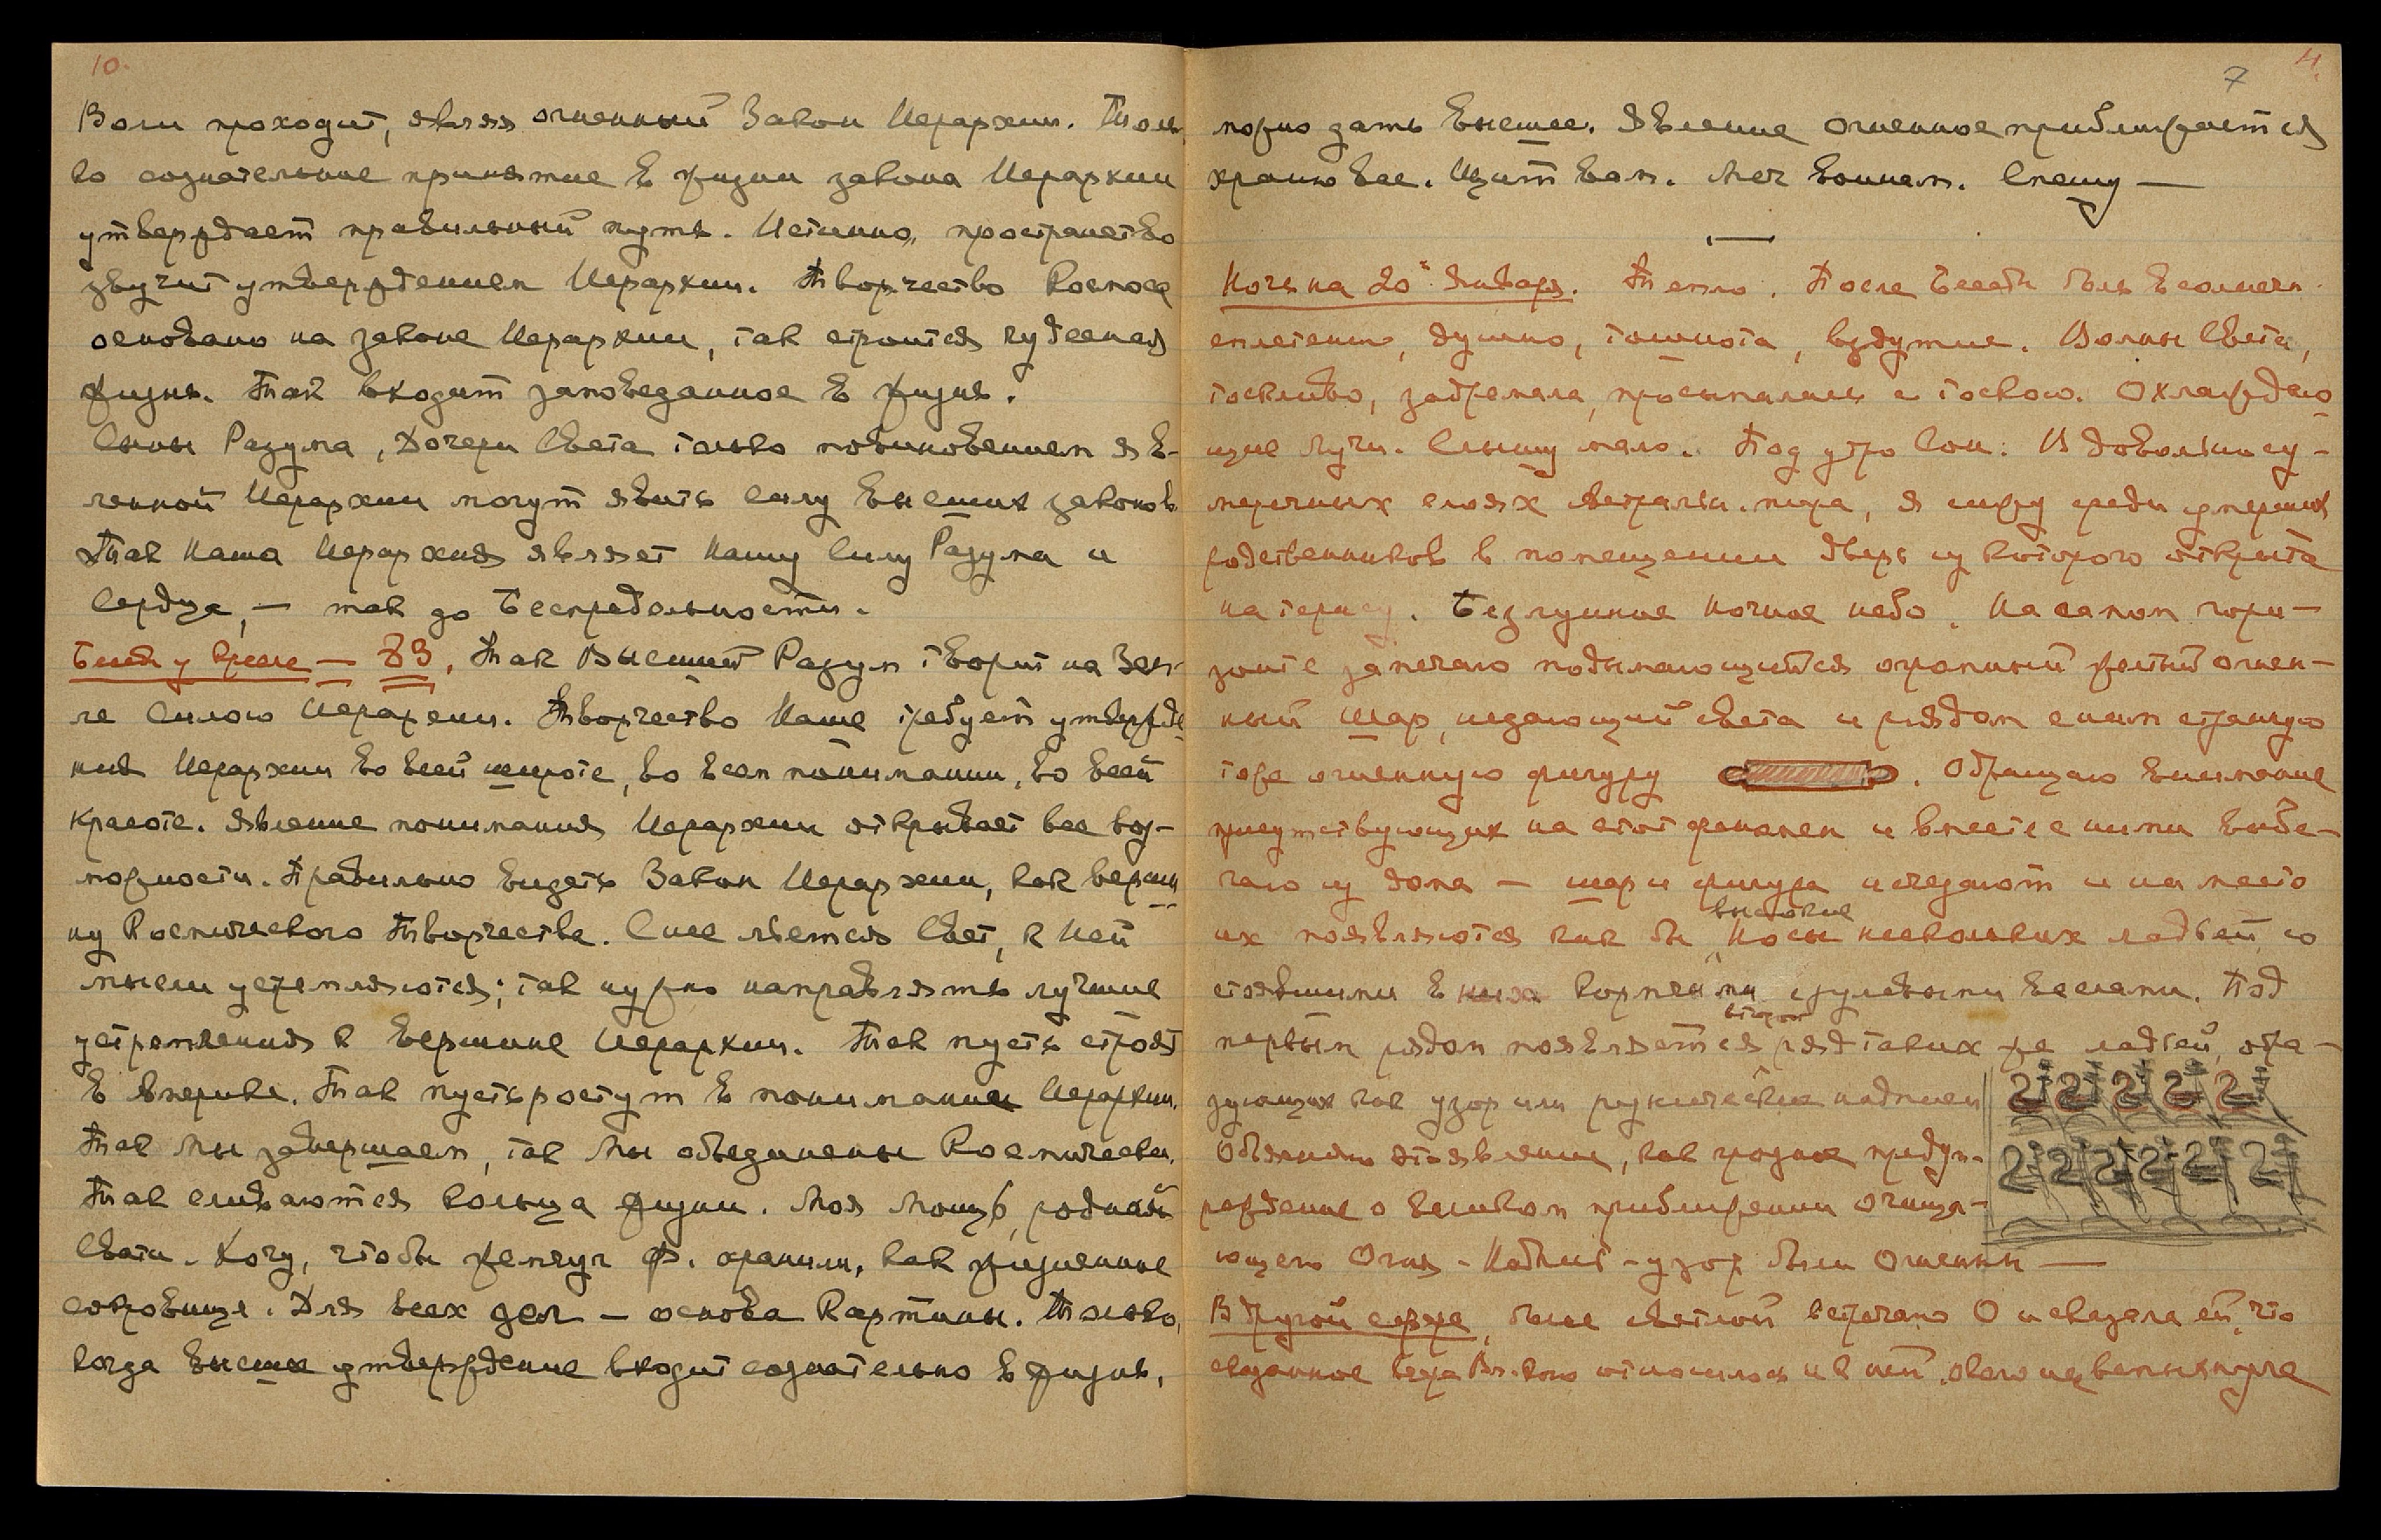 10.
Воли проходит, являя огненный Закон Иерархии. Толь
ко сознательное принятие в жизни закона Иерархии
утверждает правильный путь. Истинно, пространство
звучит утверждением Иерархии. Творчество Космоса
основано на законе Иерархии, так строится чудесная
жизнь. Так входит заповеданное в жизнь.
Сыны Разума, Дочери Света только повиновением яв-
ленной Иерархии могут явить силу высших законов
Так Наша Иерархия являет Нашу Силу Разума и
Сердца, — так до Беспредельности.
Беседа у Кресла — 83. Так Высший Разум творит на Зем-
ле Силою Иерархии. Творчество Наше требует утвержде
ния Иерархии во всей широте, во всем понимании, во всей
красоте. Явление понимания Иерархии открывает все воз-
можности. Правильно видеть Закон Иерархии, как верши
ну Космического Творчества. С нее льется Свет, к Ней
мысли устремляются; так нужно направлять лучшие
устремления к Вершине Иерархии. Так пусть строят
в Америке. Так пусть ростут в понимании Иерархии.
Так Мы завершаем, так Мы объединены Космически.
Так сливаются кольца жизни. Моя Мощь, родная
Свати. Хочу, чтобы жемчуг Ф. хранили, как жизненное
сокровище. Для всех дел — основа Картины. Только,
когда высшее утверждение входит сознательно в жизнь,
7
11.
можно дать высшее. Явление огненное приближается
храню все. Щит вам. Меч воинам. Спешу —
Ночь на 20е Января. Тепло. После Беседы боль в солнечн.
сплетении, душно, тошнота, вздутие. Волны Света,
тоскливо, задремала, просыпалась с тоскою. Охлаждаю
щие лучи. Слышу мало. Под утро Сон: В довольно су-
меречных слоях Астральн. мира, я сижу среди умерших
родственников в помещении дверь из которого открыта
на террасу. Безлунное ночное небо. На самом гори-
зонте замечаю подымающийся огромный желтый огнен-
ный шар, не дающий света и рядом с ним странную
тоже огненную фигуру. Обращаю внимание
присутствующих на этот феномен и вместе с ними выбе-
гаю из дома — шар и фигура исчезают и на место
высокие
их появляются как бы носы нескольких ладьей, со
стоявшими в них кормчими с рулевыми веслами. Под
второй
первым рядом появляется ряд таких же ладьей, обра-
зующих как узор или рунические надписи
Объясняю это явление, как грозное предуп-
реждение о великом приближении очища-
ющего Огня. Надпись - узор были Огненны —
В другой сфере, более светлой встречаю О и сказала ей, что
сказанное вчера Вл. относилось и к ней